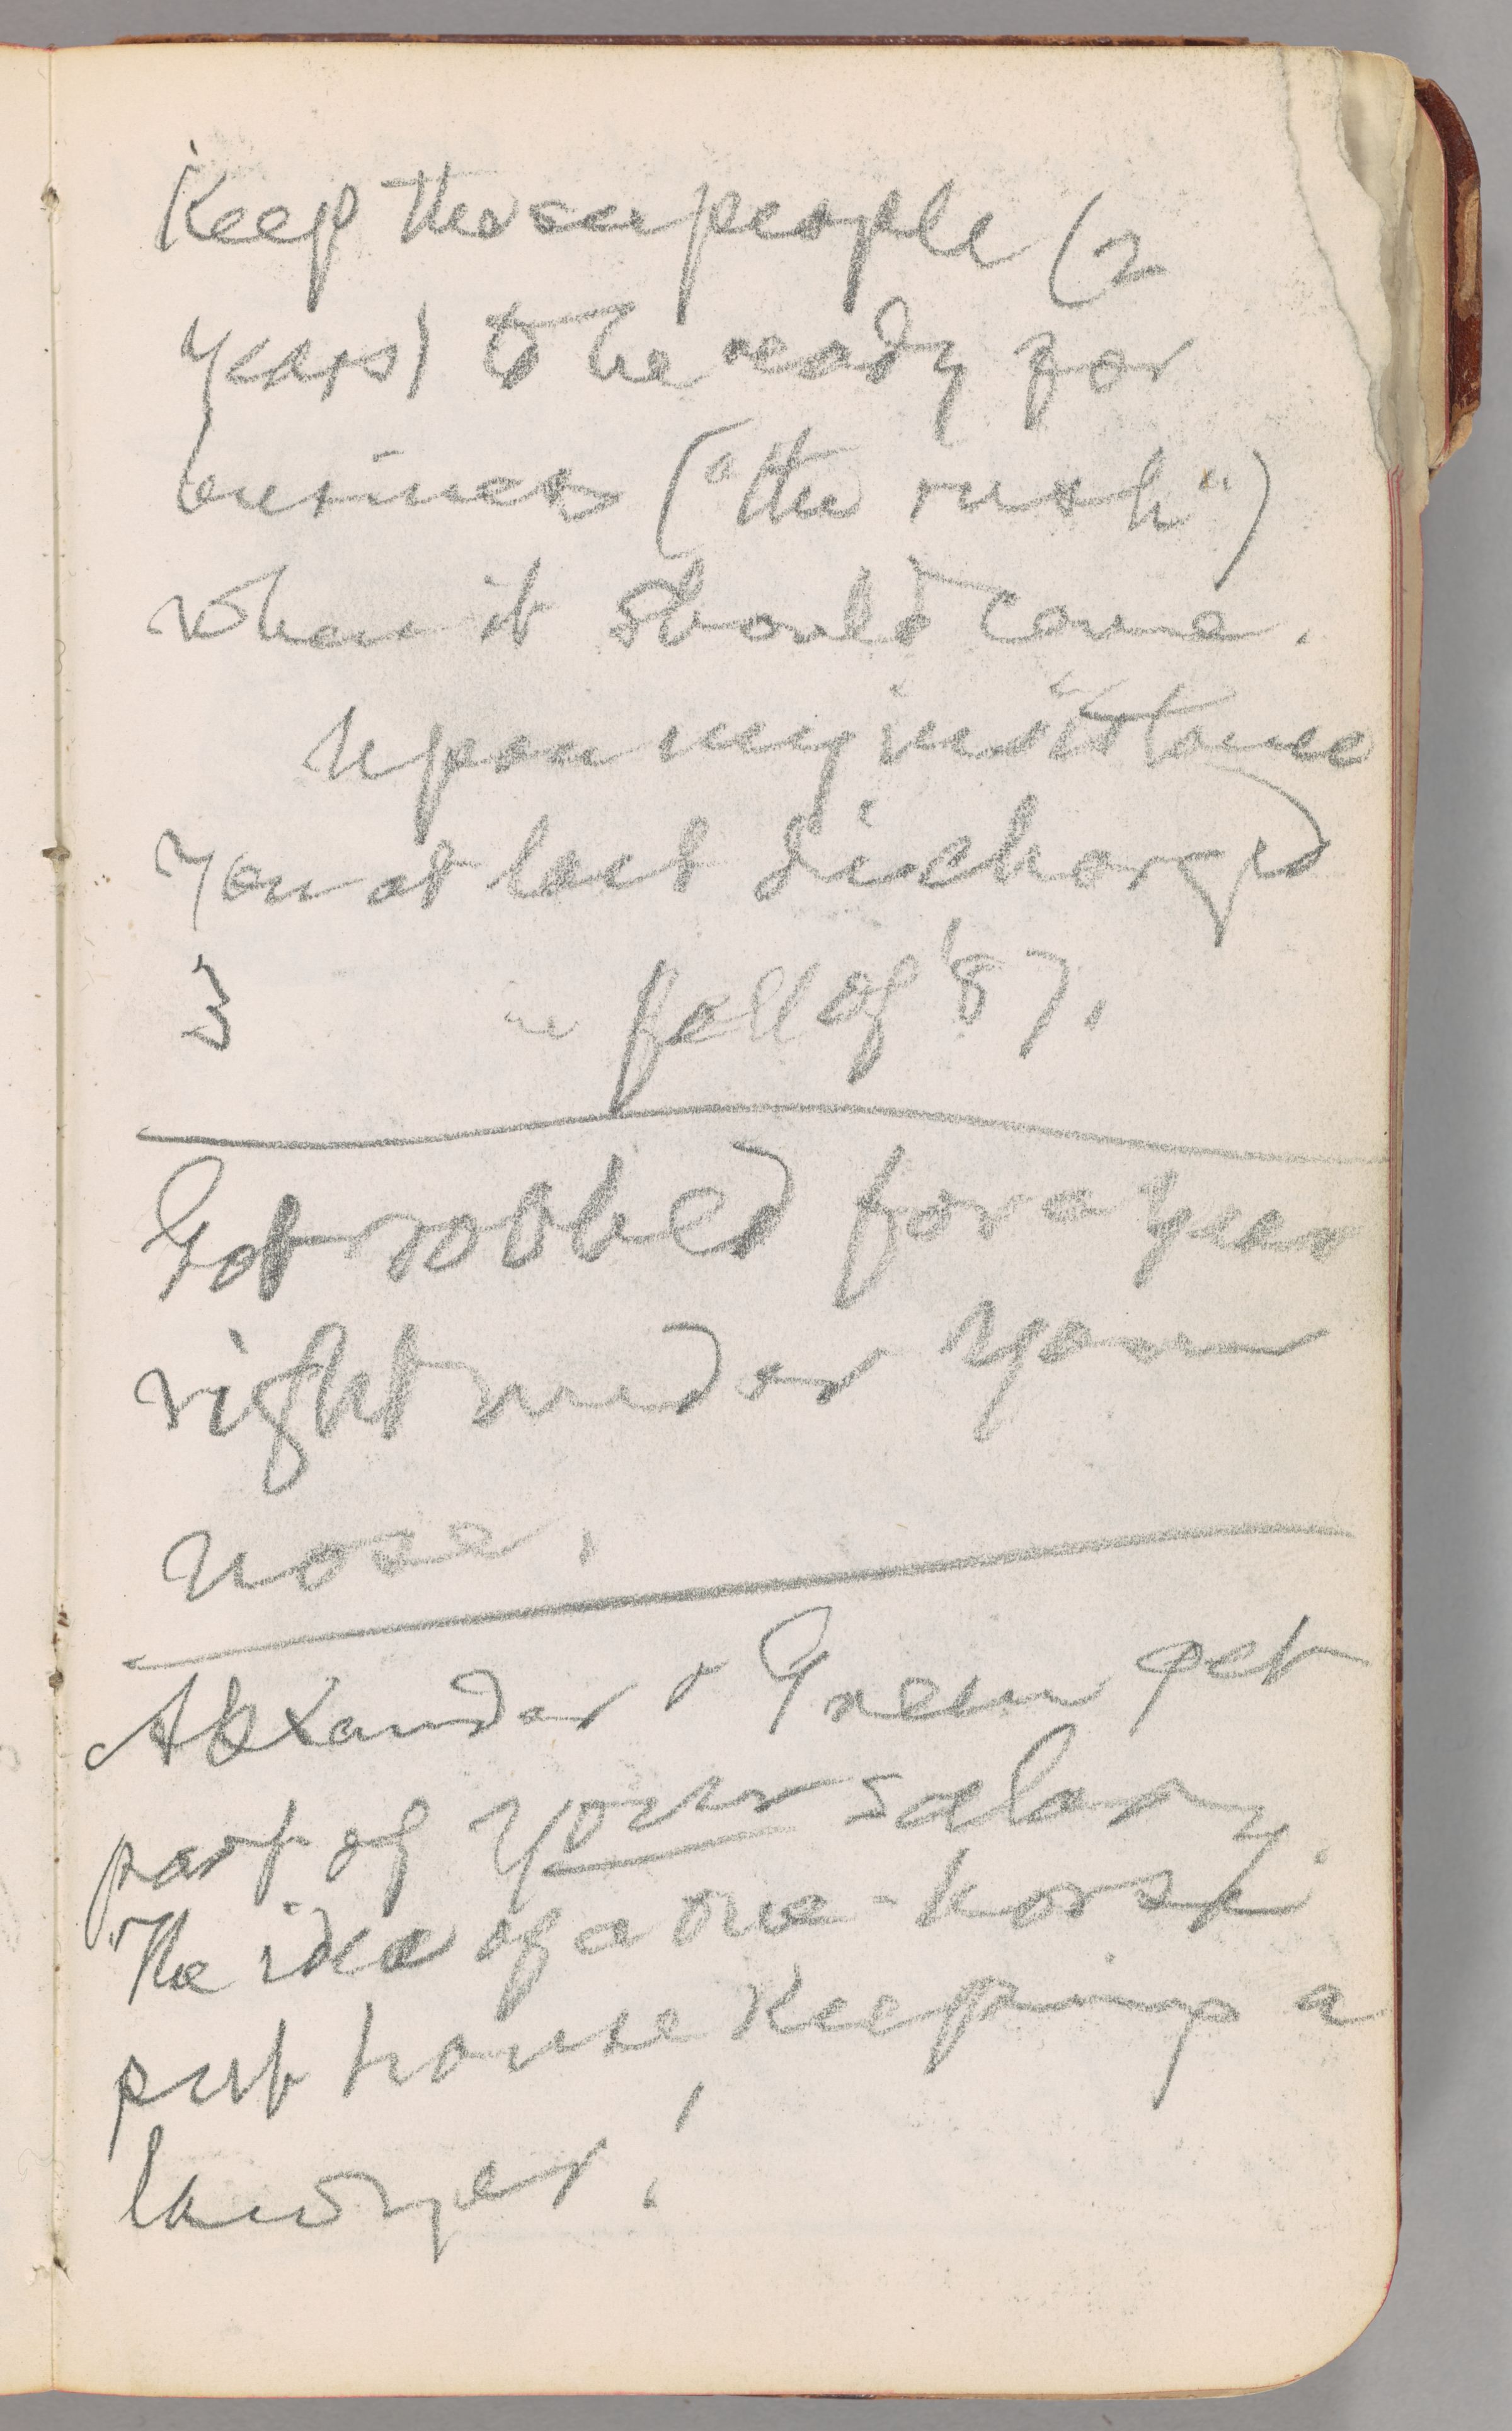 Keep those people (2
years) to be ready for
business ("the rush")
when it should come.
Upon my insistance
you at last discharged
3 in fall of '87.
Got robbed for a year
right under your
nose.
Alexander & Green get
part of your salary.
The idea of a one-horse
pub house keeping a
lawyer!